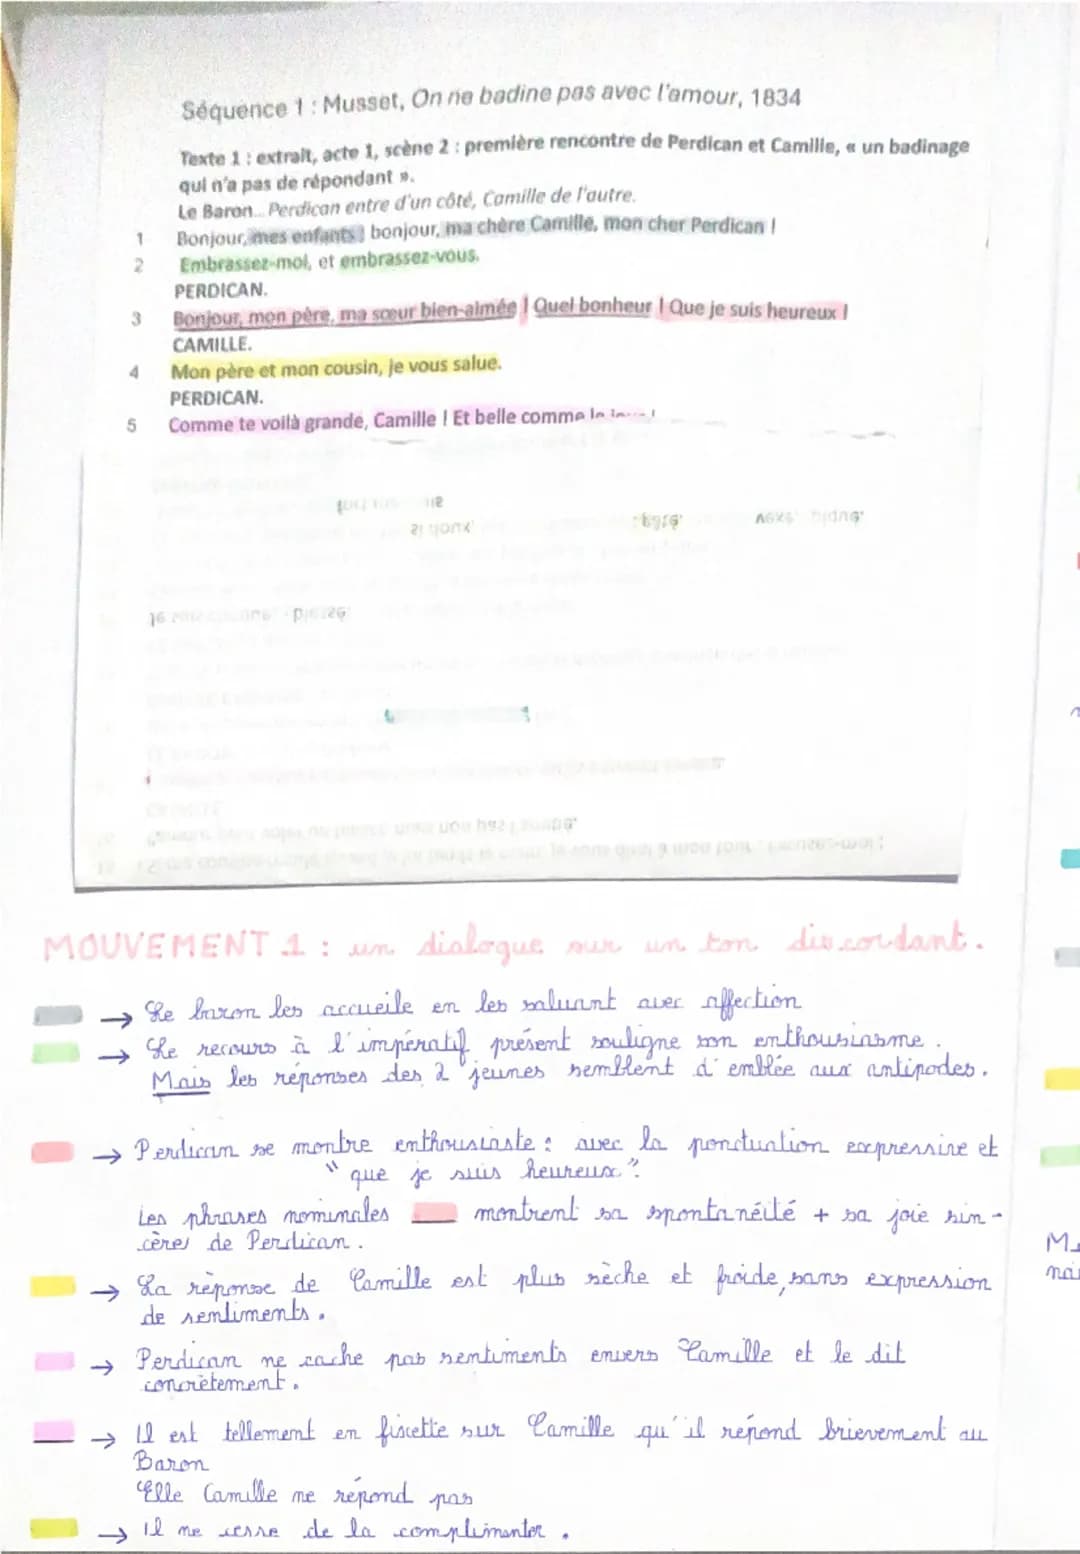 Séquence 1 : Musset, On ne badine pas avec l'amour, 1834
Texte 1 : extrait, acte 1, scène 2 : première rencontre de Perdican et Camille, « un badinage
qui n'a pas de répondant ».
Le Baron... Perdican entre d'un côté, Camille de l'autre.
1 Bonjour, mes enfants ! bonjour, ma chère Camille, mon cher Perdican !
2 Embrassez-moi, et embrassez-vous.
PERDICAN.
3 Bonjour, mon père, ma sœur bien-aimée ! Quel bonheur ! Que je suis heureux !
CAMILLE.
4 Mon père et mon cousin, je vous salue.
PERDICAN.
5 Comme te voilà grande, Camille ! Et belle comme le
MOUVEMENT 1 : un dialogue sur un ton discordant.
→ Le baron les accueile en les saluant avec affection
→ Le recours à l'impératif présent souligne son enthousiasme.
Mais les réponses des 2 jeunes semblent d'emblée aux antipodes.
→ Perdican se montre enthousiaste : avec la ponctuation expressive et
"que je suis heureux".
Les phrases nominales montrent sa spontanéité + sa joie sin-
cère de Perdican.
→ La réponse de Camille est plus sèche et froide, sans expression
de sentiments.
→ Perdican ne cache pas sentiments envers Camille et le dit
concrètement.
→ Il est tellement en fixette sur Camille qu'il répond brievement au
Baron
Elle Camille ne répond pas
→ Il ne cesse de la complimenter.